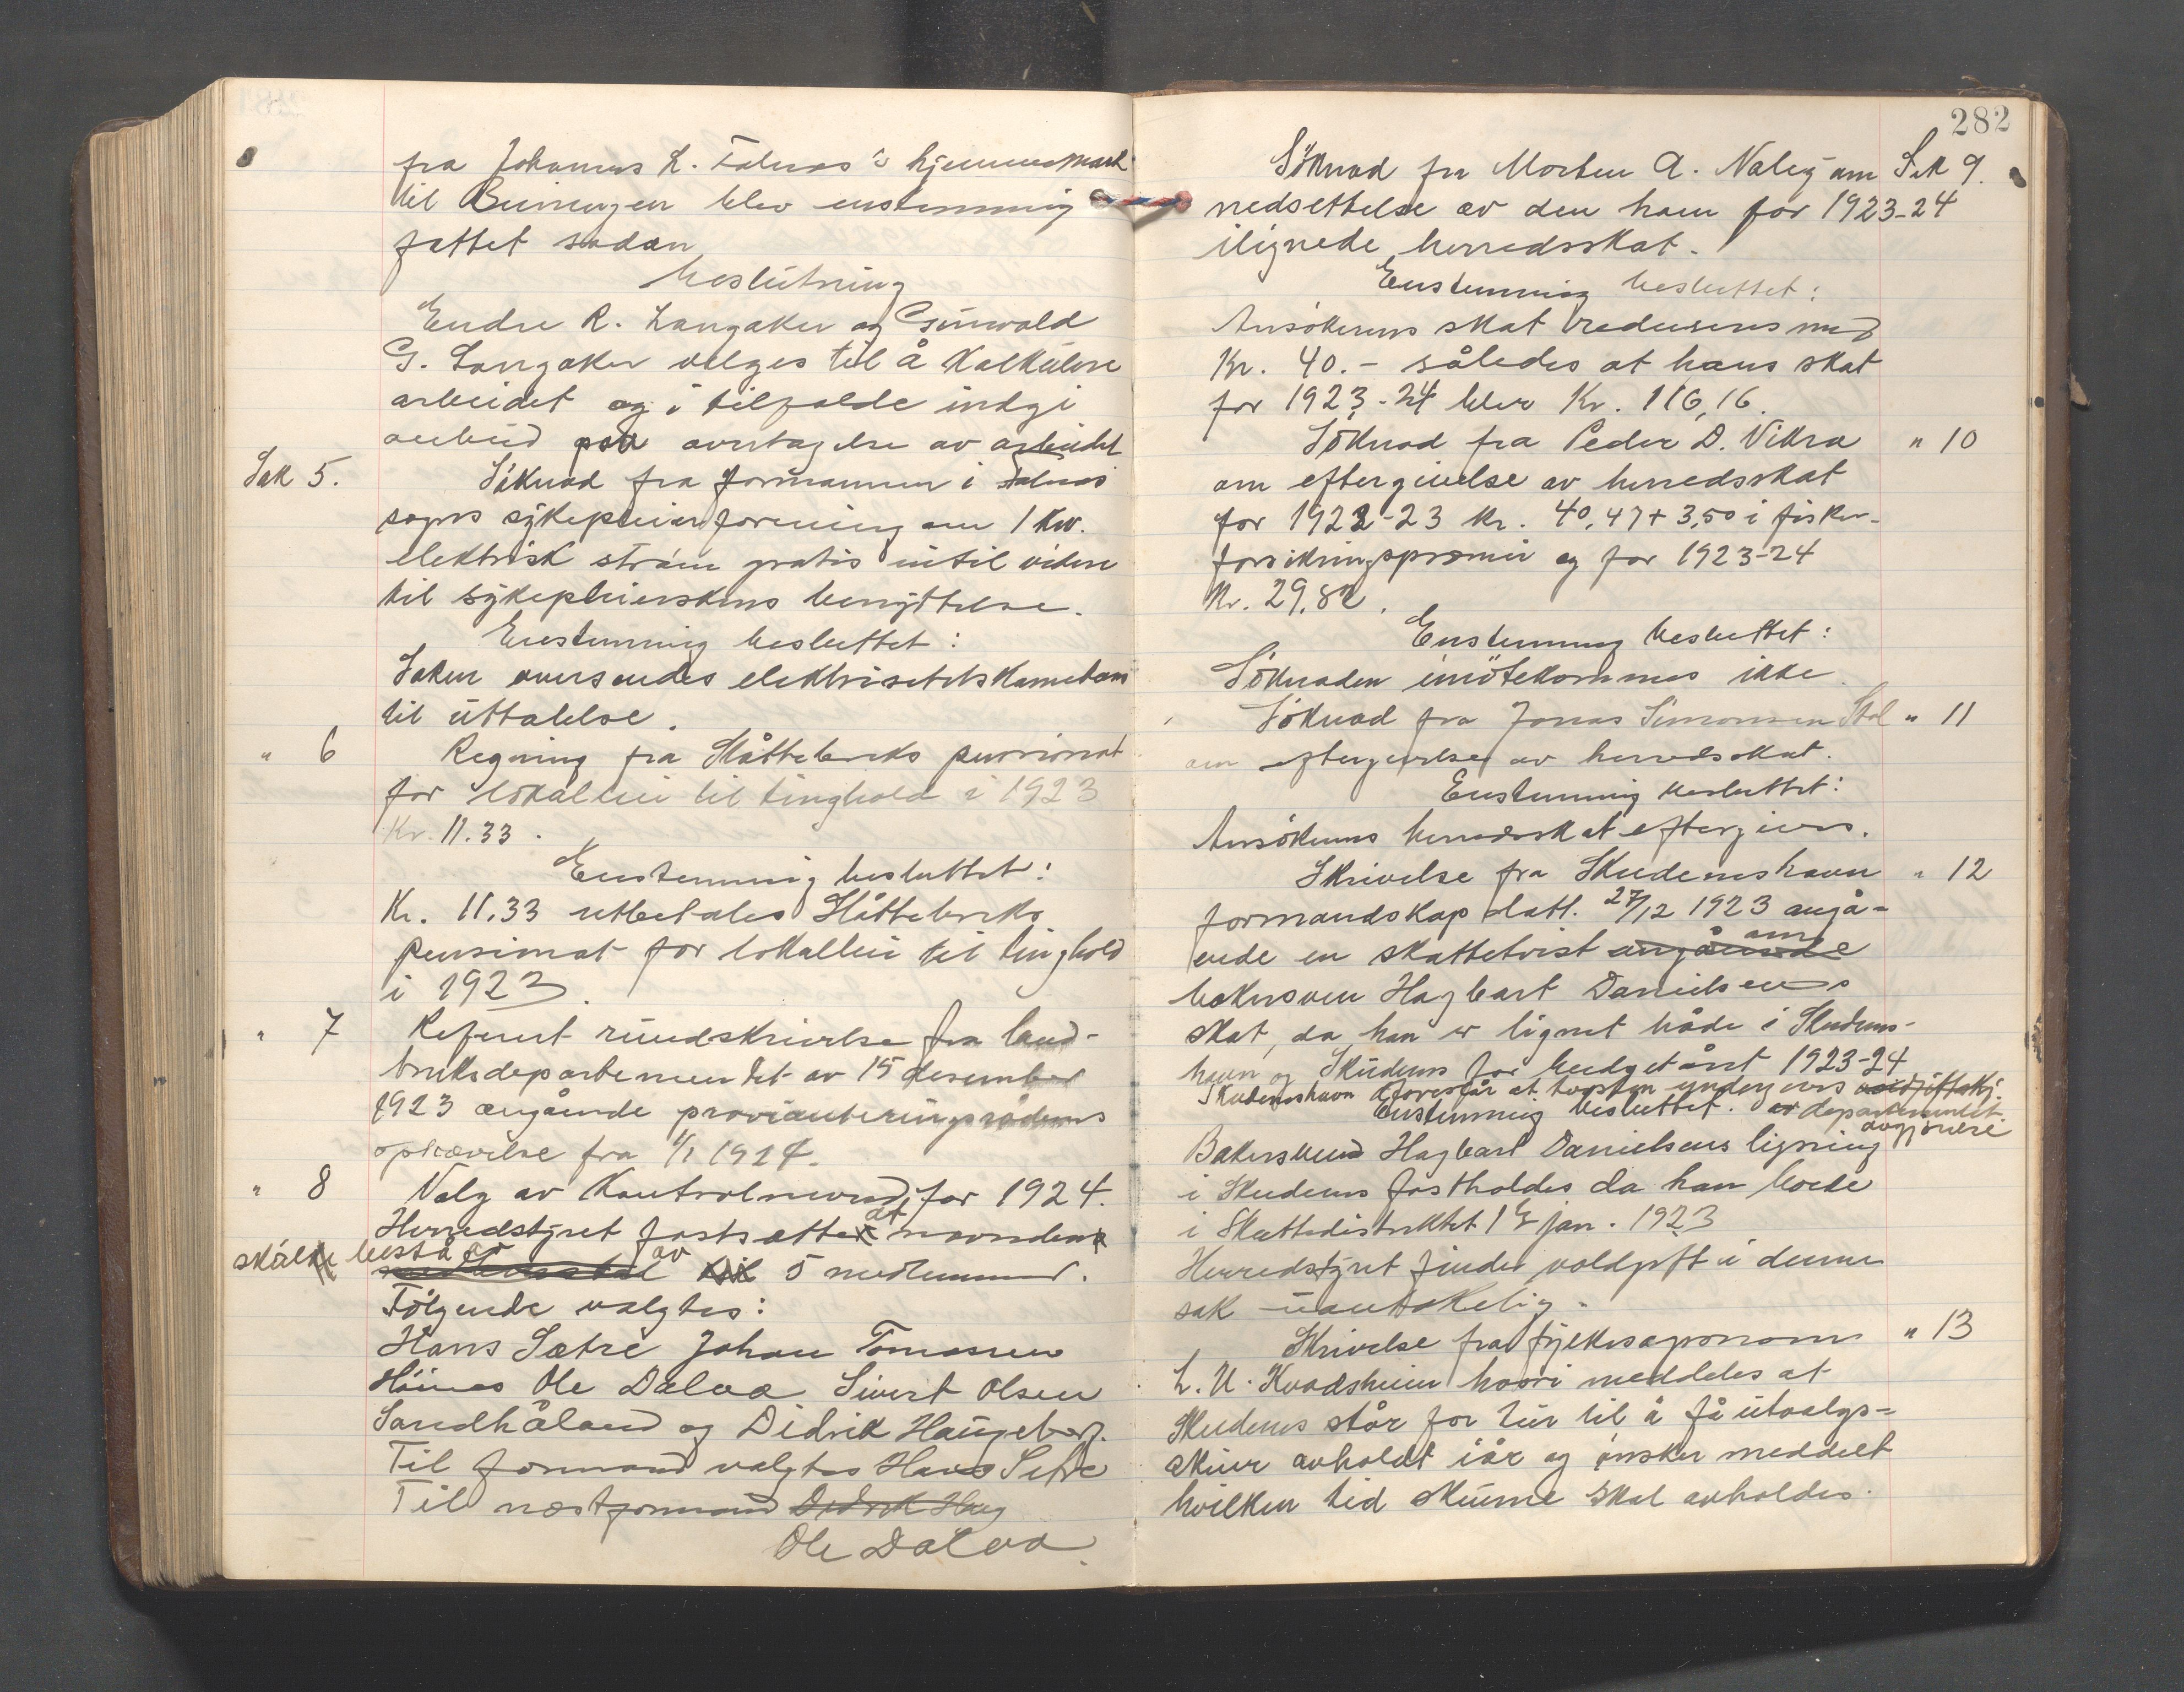 fra Johannes L. Falnes's hjemmemark
til Buvingen blev enstemmig
fattet sådan
beslutning
Endre R. Langaker og Gunvald
G. Langaker velges til å kalkulere
arbeidet og i tilfælde indgi
anbud paa overtagelse av arbeidet
Sak 5. Söknad fra formannen i Falnes
sogns sykepleierforening om 1 kw.
elektrisk ström gratis intil videre
til sykepleierskens benyttelse.
Enstemmig besluttet:
Saken oversendes elektrisitetskomiteen
til uttalelse.
" 6 Regning fra Slåttebreks pensionat
for lokalleie til tinghold i 1923
Kr. 11.33.
Enstemmig besluttet:
Kr. 11,33 utbetales Slåttebreks
pensionat for lokalleie til tinghold
i 1923.
" 7 Referert rundskrivelse fra land-
bruksdepartementet av 15 desember
1923 angående provianteringsrådenes
ophævelse fra 1/1 1924.
" 8 Valg av Kontrolnevnd for 1924.
Herredstyret fastsetter at nevnden
skal bestå av av 5 medlemmer.
Fölgende valgtes:
Hans Sætre Johan Tomassen
Hönes Ole Dalva Sivert Olsen
Sandhåland og Didrik Haugeberg.
Til formand valgtes Hans Setre
Til næstformand Didrik Haug
Ole Dalva.
282
Söknad fra Morten A. Naley om Sak 9.
nedsettelse av den ham for 1923-24
ilignede herredsskat.
Enstemmig besluttet:
Ansökerens skat reduseres med
Kr. 40.- således at hans skat
for 1923-24 blir Kr. 116,16.
Söknad fra Peder D. Vikra " 10
om eftergivelse av herredsskat
for 1922-23 kr. 40,47 + 3,50 i fisker-
forsikringspremie og for 1923-24
Kr. 29,82.
Enstemmig besluttet:
Söknaden imötekommes ikke.
Söknad fra Jonas Simonsen Stol " 11
om eftergivelse av herredsskat.
Enstemmig besluttet:
Ansökerens herredsskat eftergives.
Skrivelse fra Skudeneshavn " 12
formandskap datt. 27/12 1923 angå-
ende en skattetvist angående om
bakersven Hagbart Danielsens
skat, da han er lignet både i Skudenes-
havn og Skudenes for budgetåret 1923-24
Skudeneshavn foreslår at tvisten undergives voldgiftskj.
Enstemmig besluttet. av departementet
avgjörelse
Bakersvend Hagbart Danielsens ligning
i Skudenes fastholdes da han bodde
i Skattedistriktet 1ste jan. 1923
Herredstyret finder voldgift i denne
sak uantakelig.
Skrivelse fra fylkesagronom " 13
L. U. Kvadsheim hvori meddeles at
Skudenes står for tur til å få utvalgs-
skuer avholdt iår og önsker meddelt
hvilken tid skuene skal avholdes.